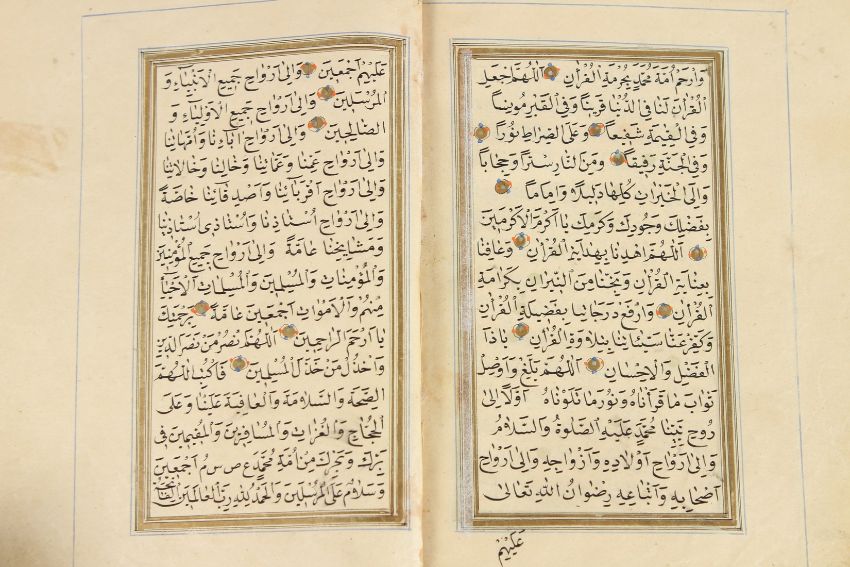 وَارْحَمْ اُمَّةَ مُحَمَّدٍ بِحُرْمَةِ الْقُرْاٰنِ اَللّٰهُمَّ اجْعَلِ
الْقُرْاٰنَ لَنَا فِى الدُّنْيَا قَرِينًا وَفِى الْقَبْرِ مُونِسًا
وَفِى الْقِيٰمَةِ شَفِيعًا وَعَلَى الصِّرَاطِ نُورًا
وَفِى الْجَنَّةِ رَفِيقًا وَمِنَ النَّارِ سِتْرًا وَحِجَابًا
وَاِلَى الْخَيْرَاتِ كُلِّهَا دَلِيلًا وَاِمَامًا
بِفَضْلِكَ وَجُودِكَ وَكَرَمِكَ يَا اَكْرَمَ الْاَكْرَمِينَ
اَللّٰهُمَّ اهْدِنَا بِهِدَايَةِ الْقُرْاٰنِ وَعَافِنَا
بِعِنَايَةِ الْقُرْاٰنِ وَنَجِّنَا مِنَ النِّيرَانِ بِكَرَامَةِ
الْقُرْاٰنِ وَارْفَعْ دَرَجَاتِنَا بِفَضِيلَةِ الْقُرْاٰنِ
وَكَفِّرْ عَنَّا سَيِّئَاتِنَا بِتِلَاوَةِ الْقُرْاٰنِ يَا ذَا
الْفَضْلِ وَالْاِحْسَانِ اَللّٰهُمَّ بَلِّغْ وَاَوْصِلْ
ثَوَابَ مَا قَرَأْنَاهُ وَنُورَ مَا تَلَوْنَاهُ اَوَّلًا اِلٰى
رُوحِ نَبِيِّنَا مُحَمَّدٍ عَلَيْهِ الصَّلٰوةُ وَالسَّلَامُ
وَاِلٰى اَرْوَاحِ اَوْلَادِهِ وَاَزْوَاجِهِ وَاِلٰى اَرْوَاحِ
اَصْحَابِهِ وَاَتْبَاعِهِ رِضْوَانُ اللّٰهِ تَعَالٰى
عَلَيْهِمْ
عَلَيْهِمْ اَجْمَعِينَ وَاِلٰى اَرْوَاحِ جَمِيعِ الْاَنْبِيَاءِ وَ
الْمُرْسَلِينَ وَاِلٰى اَرْوَاحِ جَمِيعِ الْاَوْلِيَاءِ وَ
الصَّالِحِينَ وَاِلٰى اَرْوَاحِ اٰبَاءِنَا وَاُمَّهَاتِنَا
وَاِلٰى اَرْوَاحِ عَمِّنَا وَعَمَّاتِنَا وَخَالِنَا وَخَالَاتِنَا
وَاِلٰى اَرْوَاحِ اَقْرِبَائِنَا وَاَصْدِقَائِنَا خَاصَّةً
وَاِلٰى اَرْوَاحِ اُسْتَاذِنَا وَاُسْتَاذِى اُسْتَاذِنَا
وَمَشَايِخِنَا عَامَّةً وَاِلٰى اَرْوَاحِ جَمِيعِ الْمُؤْمِنِينَ
وَالْمُؤْمِنَاتِ وَالْمُسْلِمِينَ وَالْمُسْلِمَاتِ الْاَحْيَاءِ
مِنْهُمْ وَالْاَمْوَاتِ اَجْمَعِينَ عَامَّةً بِرَحْمَتِكَ
يَا اَرْحَمَ الرَّاحِمِينَ اَللّٰهُمَّ انْصُرْ مَنْ نَصَرَ الدِّينَ
وَاخْذُلْ مَنْ خَذَلَ الْمُسْلِمِينَ وَاكْتُبِ اللّٰهُمَّ
الصِّحَّةَ وَالسَّلَامَةَ وَالْعَافِيَةَ عَلَيْنَا وَعَلَى
الْحُجَّاجِ وَالْغُزَاتِ وَالْمُسَافِرِينَ وَالْمُقِيمِينَ فِى
بَرِّكَ وَبَحْرِكَ مِنْ اُمَّةِ مُحَمَّدٍ اَجْمَعِينَ
وَسَلَامٌ عَلَى الْمُرْسَلِينَ وَالْحَمْدُ لِلّٰهِ رَبِّ الْعَالَمِينَ الفاتحة